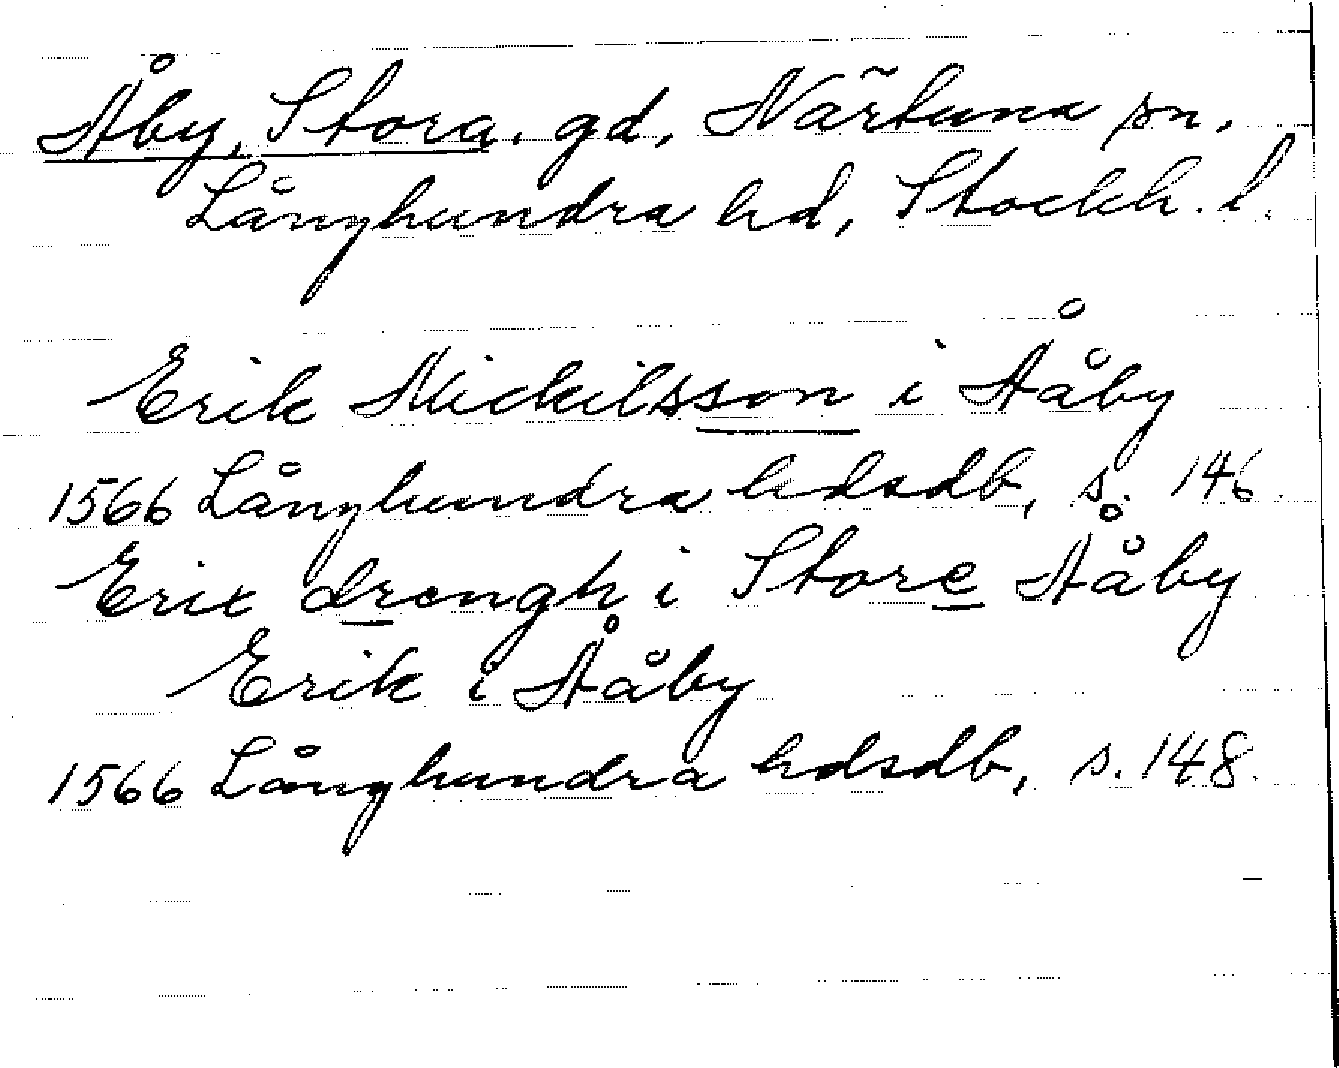 Åby, Stora. gd, Närtuna sn,
Långhundra hd, Stockh. l.
Erik Mickilsson i Ååby
1566 Långhundra hdsdb, s. 146.
Eric drengh i Store Ååby
Erik i Ååby
1566 Långhundra hdsdb, s. 148.